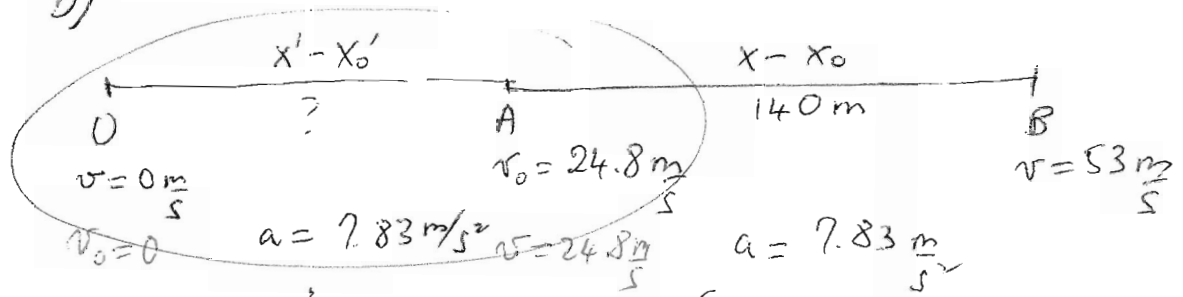 b)
x' - x₀' x - x₀
? 140 m
O A B
v = 0 m/s v₀ = 24.8 m/s v = 53 m/s
v₀ = 0 a = 7.83 m/s² v = 24.8 m/s a = 7.83 m/s²